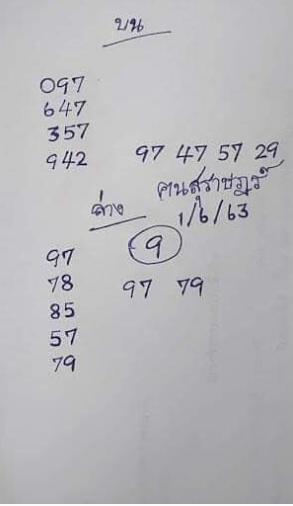 บน
097
647
357
942 97 47 57 29
คนสุราษฎร์
ล่าง 1/6/63
97 9
78 97 79
85
57
79